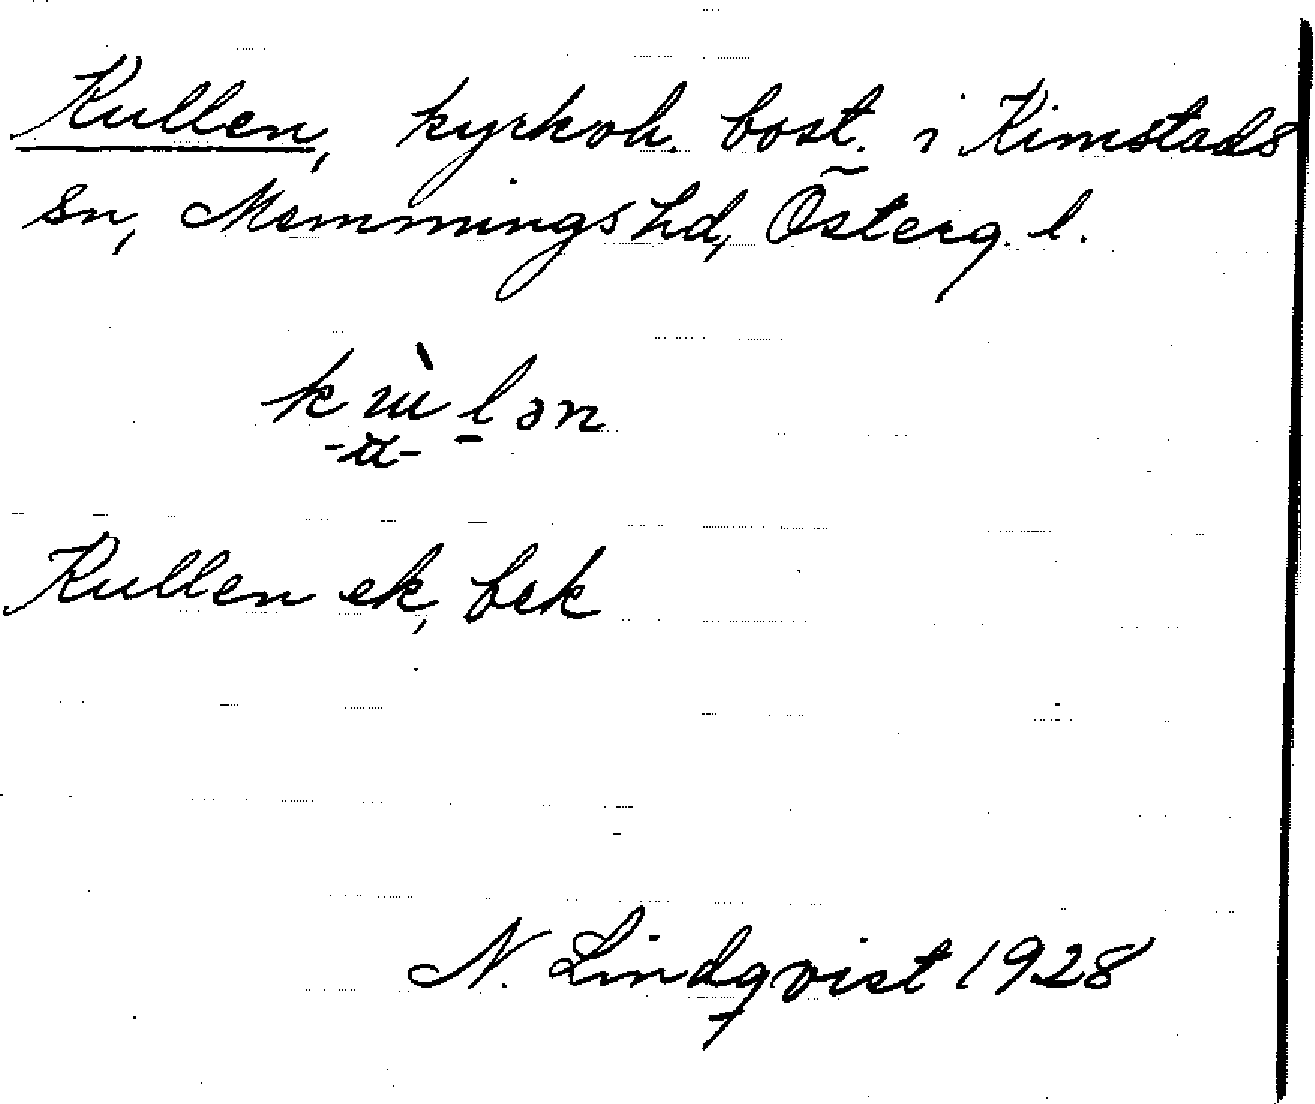 Kullen, kyrkoh. bost. i Kimstads
sn, Memmings hd, Österg. l.
Kullen ek, bek
N. Lindqvist 1928